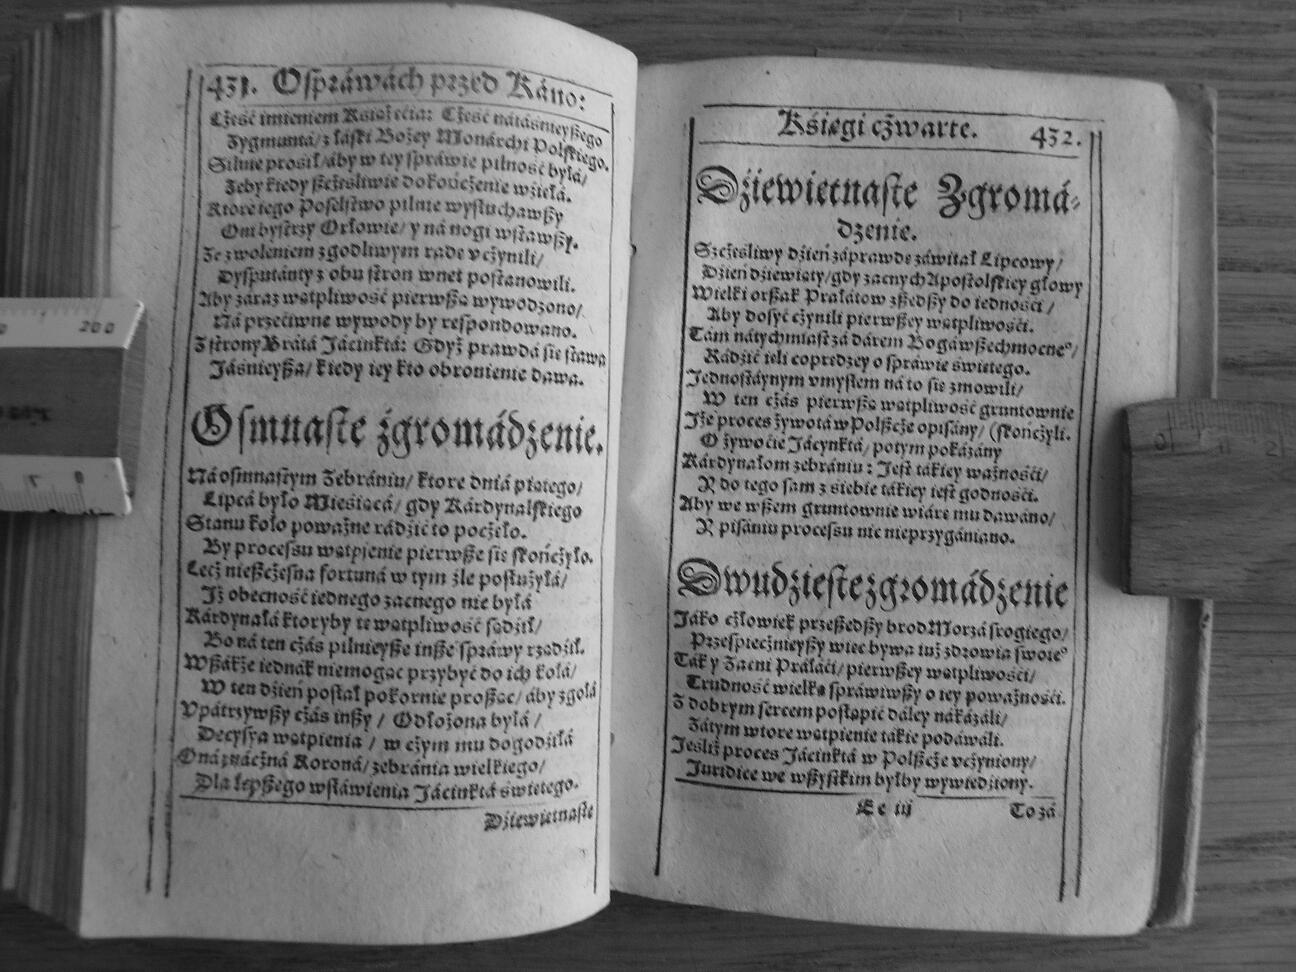 431. O spráwách przed Káno:
Cżeść imieniem Ksiożećia: Cżeść nátásnieyßego
Zygmuntá/ z łáski Bożey Monárchi Polskiego.
Silnie prosił/ áby w tey spráwie pilność byłá/
Żeby kiedy ßcżęśliwie dokońcżenie wźięłá.
Ktore tego Poselstwo pilnie wysłuchawßy
Oni bystrzy Orłowie/ y ná nogi wstawßy.
Ze zwoleniem zgodliwym rádę vcżynili/
Dysputánty z obu stron wnet postánowili.
Aby záraz wątpliwość pierwßą wywodzono/
Ná przećiwne wywody by respondowano.
Z strony Brátá Jácinktá: Gdyż prawdá się stawa
Jáśnieyßa/ kiedy iey kto obronienie dawa.
Osmnaste źgromádzenie.
Ná osmnastym Zebrániu/ ktore dniá piątego/
Lipcá było Mieśiącá/ gdy Kárdynalskiego
Stanu koło poważne rádźić to pocżęło.
By processu wątpienie pierwße się skończyło.
Lecż nießcżesna fortuná w tym źle posłużyłá/
Iż obecność iednego zacnego nie byłá
Kárdynałá ktoryby tę wątpliwość sądźił/
Bo ná ten cżás pilnieyße inße spráwy rządźił.
Wßákże iednák niemogąc przybyć do ich kołá/
W ten dźień posłał pokornie proßąc/ áby zgołá
Vpátrzywßy cżás inßy / Odłożona byłá /
Decysya wątpienia / w cżym mu dogodźiłá
Oná znácżna Koroná/ zebránia wielkiego/
Dla lepßego wsławienia Jácinktá świętego.
Dźiewiętnaste
Kśięgi cżwarte. 432.
Dźiewiętnaste Zgromá-
dzenie.
Szcżęśliwy dźień záprawdę záwitał Lipcowy/
Dźień dźiewiąty/ gdy zacnych Apostolskiey głowy
Wielki orßak Prałatow zßedßy do iednośći /
Aby dosyć cżynili pierwßey wątpliwośći.
Tám nátychmiast zá dárem Bogá wßechmocneº/
Rádźić ięli coprędzey o spráwie świętego.
Jednostáynym vmysłem ná to się zmowili/
W ten cżás pierwßą wątpliwość gruntownie
Jże proces żywotá w Polßcże opisány/ (skońcżyli.
O żywoćie Jácynktá/ potym pokázány
Kárdynałom zebrániu: Jest tákiey ważnośći/
Y do tego sam z siebie tákiey iest godnośći.
Aby we wßem gruntownie wiárę mu dawáno/
Y pisániu processu nic nieprzygániano.
Dwudziestezgromádzenie
Jáko cżłowiek przeßedßy brod Morzá srogiego/
Przespiecżnieyßy więc bywa iuż zdrowia swoieº
Ták y Zacni Práłáći/ pierwßey wątpliwośći/
Trudność wielką spráwiwßy o tey poważnośći.
Z dobrym sercem postąpić dáley nákázáli/
Zátym wtore wątpienie tákie podáwáli.
Jeśliż proces Jácinktá w Polßcże vcżyniony/
Juridice we wßystkim byłby wywiedźiony.
Ee iij To zá